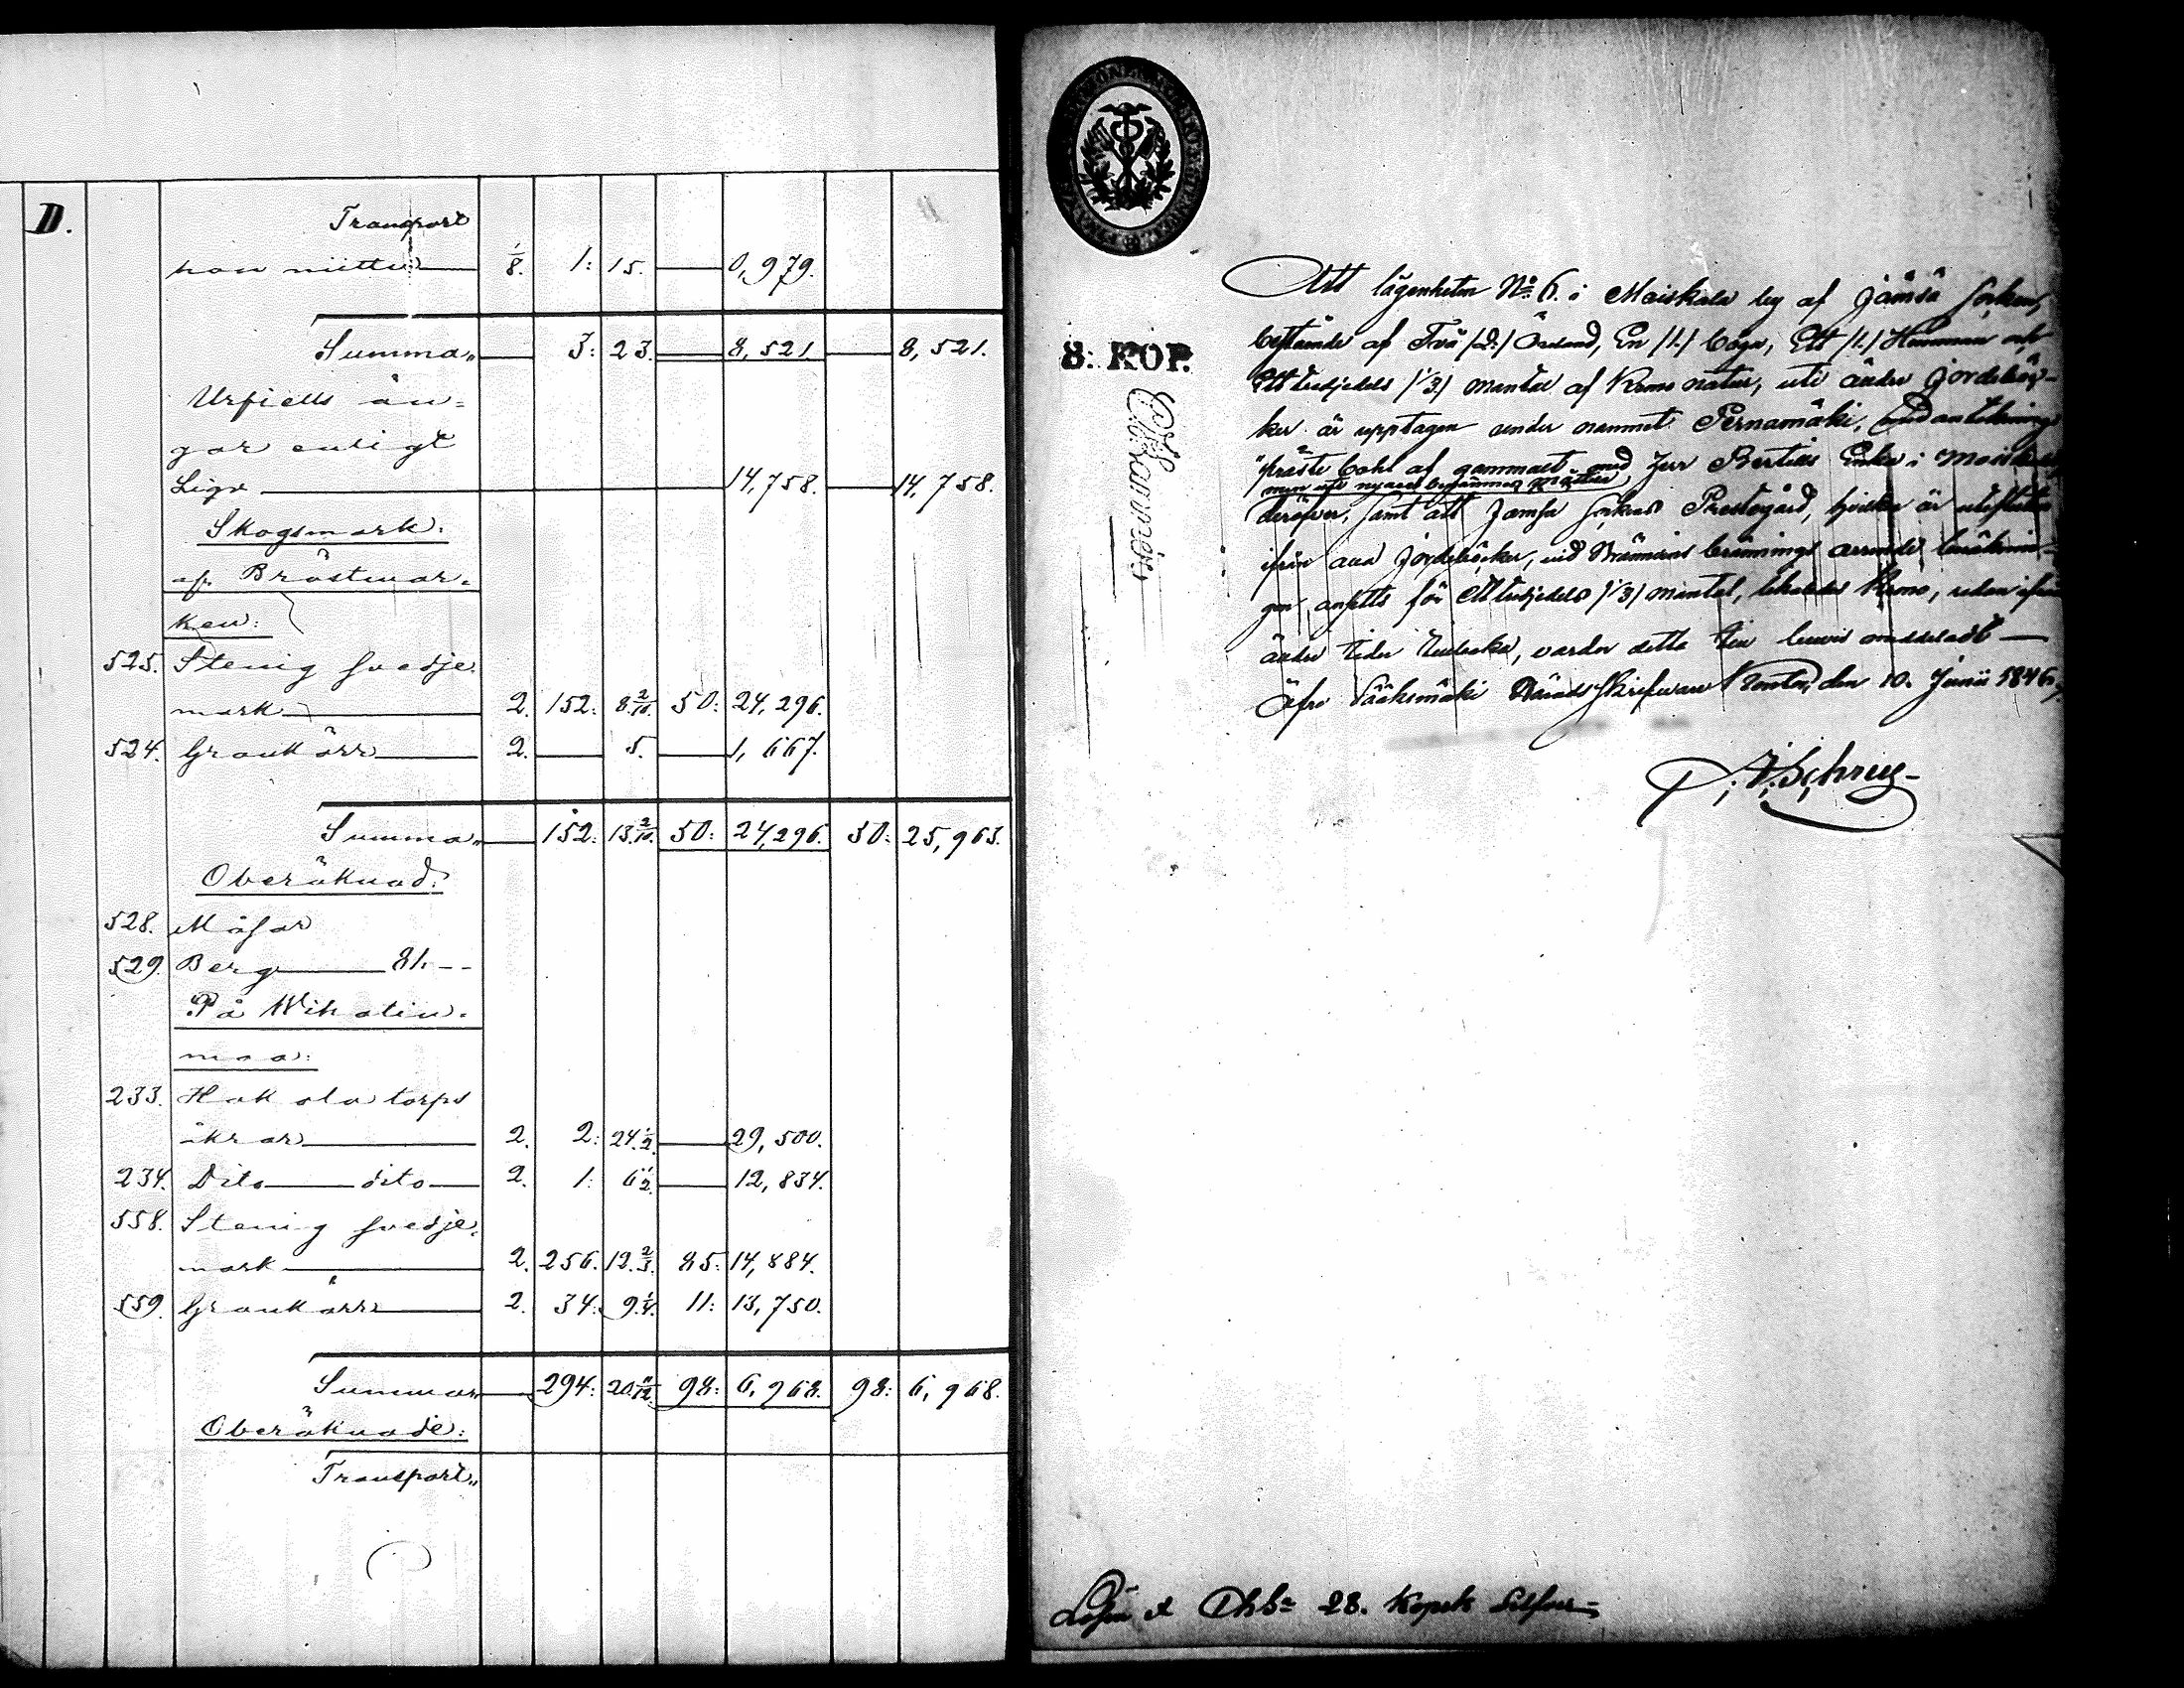 D.
Transport
han niittu 1/8. 1: 15. 0,979.
Summa 3: 23. 8,521 8,521.
Urfjells än-
gar enligt
Liqv 14,758. 14,758.
Skogsmark.
af Bråstmar-
ken:
525. Stenig svedje-
mark 2. 152: 8.2/10. 50: 24,296.
524. Grankärr 2. 5. 1,667.
Summa 152: 13.2/10. 50: 24,296. 50: 25,963.
Oberäknad:
528. Måsar
529. Berg 81.--
På Wihatin-
maa:
233. Hakola torps
åkrar 2. 2: 24.1/2. 29,500.
234. Dito dito 2. 1: 6 1/2. 12,834.
558. Stenig svedje-
mark 2. 256. 12.2/3. 85: 14,884.
559. Grankärr 2. 34: 9.1/4. 11: 13,750.
Summa 294: 20.11/12. 98: 6,968. 98: 6,968.
Oberäknade:
Transport
8: KOP.
Att lägenheten No 6. i Moiskala by af Jämsä Socken,
bestående af Två /2:/ Öresland, En /1./ Boge, Ett /1./ Hemman och
Ett tredjedels /1/3./ mantal af Krono natur, uti äldre Jordeböc-
ker är upptagen under namnet Pernamäki, med anteckning
"präste bohl af gammalt med Jur Bertils Enka i Moiskala
derefver, samt att Jämsä Sockens Prestegård, hvilken är utesluten
ifrån alla Jordeböcker, vid Brännvins bränings arrende beräknin-
gen ansetts för Ett tredjedels /1/3/ mantal, likaledes Krono, redan ifrån
äldre tider, varder detta till bevis meddeladt
Öfre Sääksmäki Härads Skrifware Contor, den 10. Junii 1846.
Lösen et Chb 28. Kopek Silfver